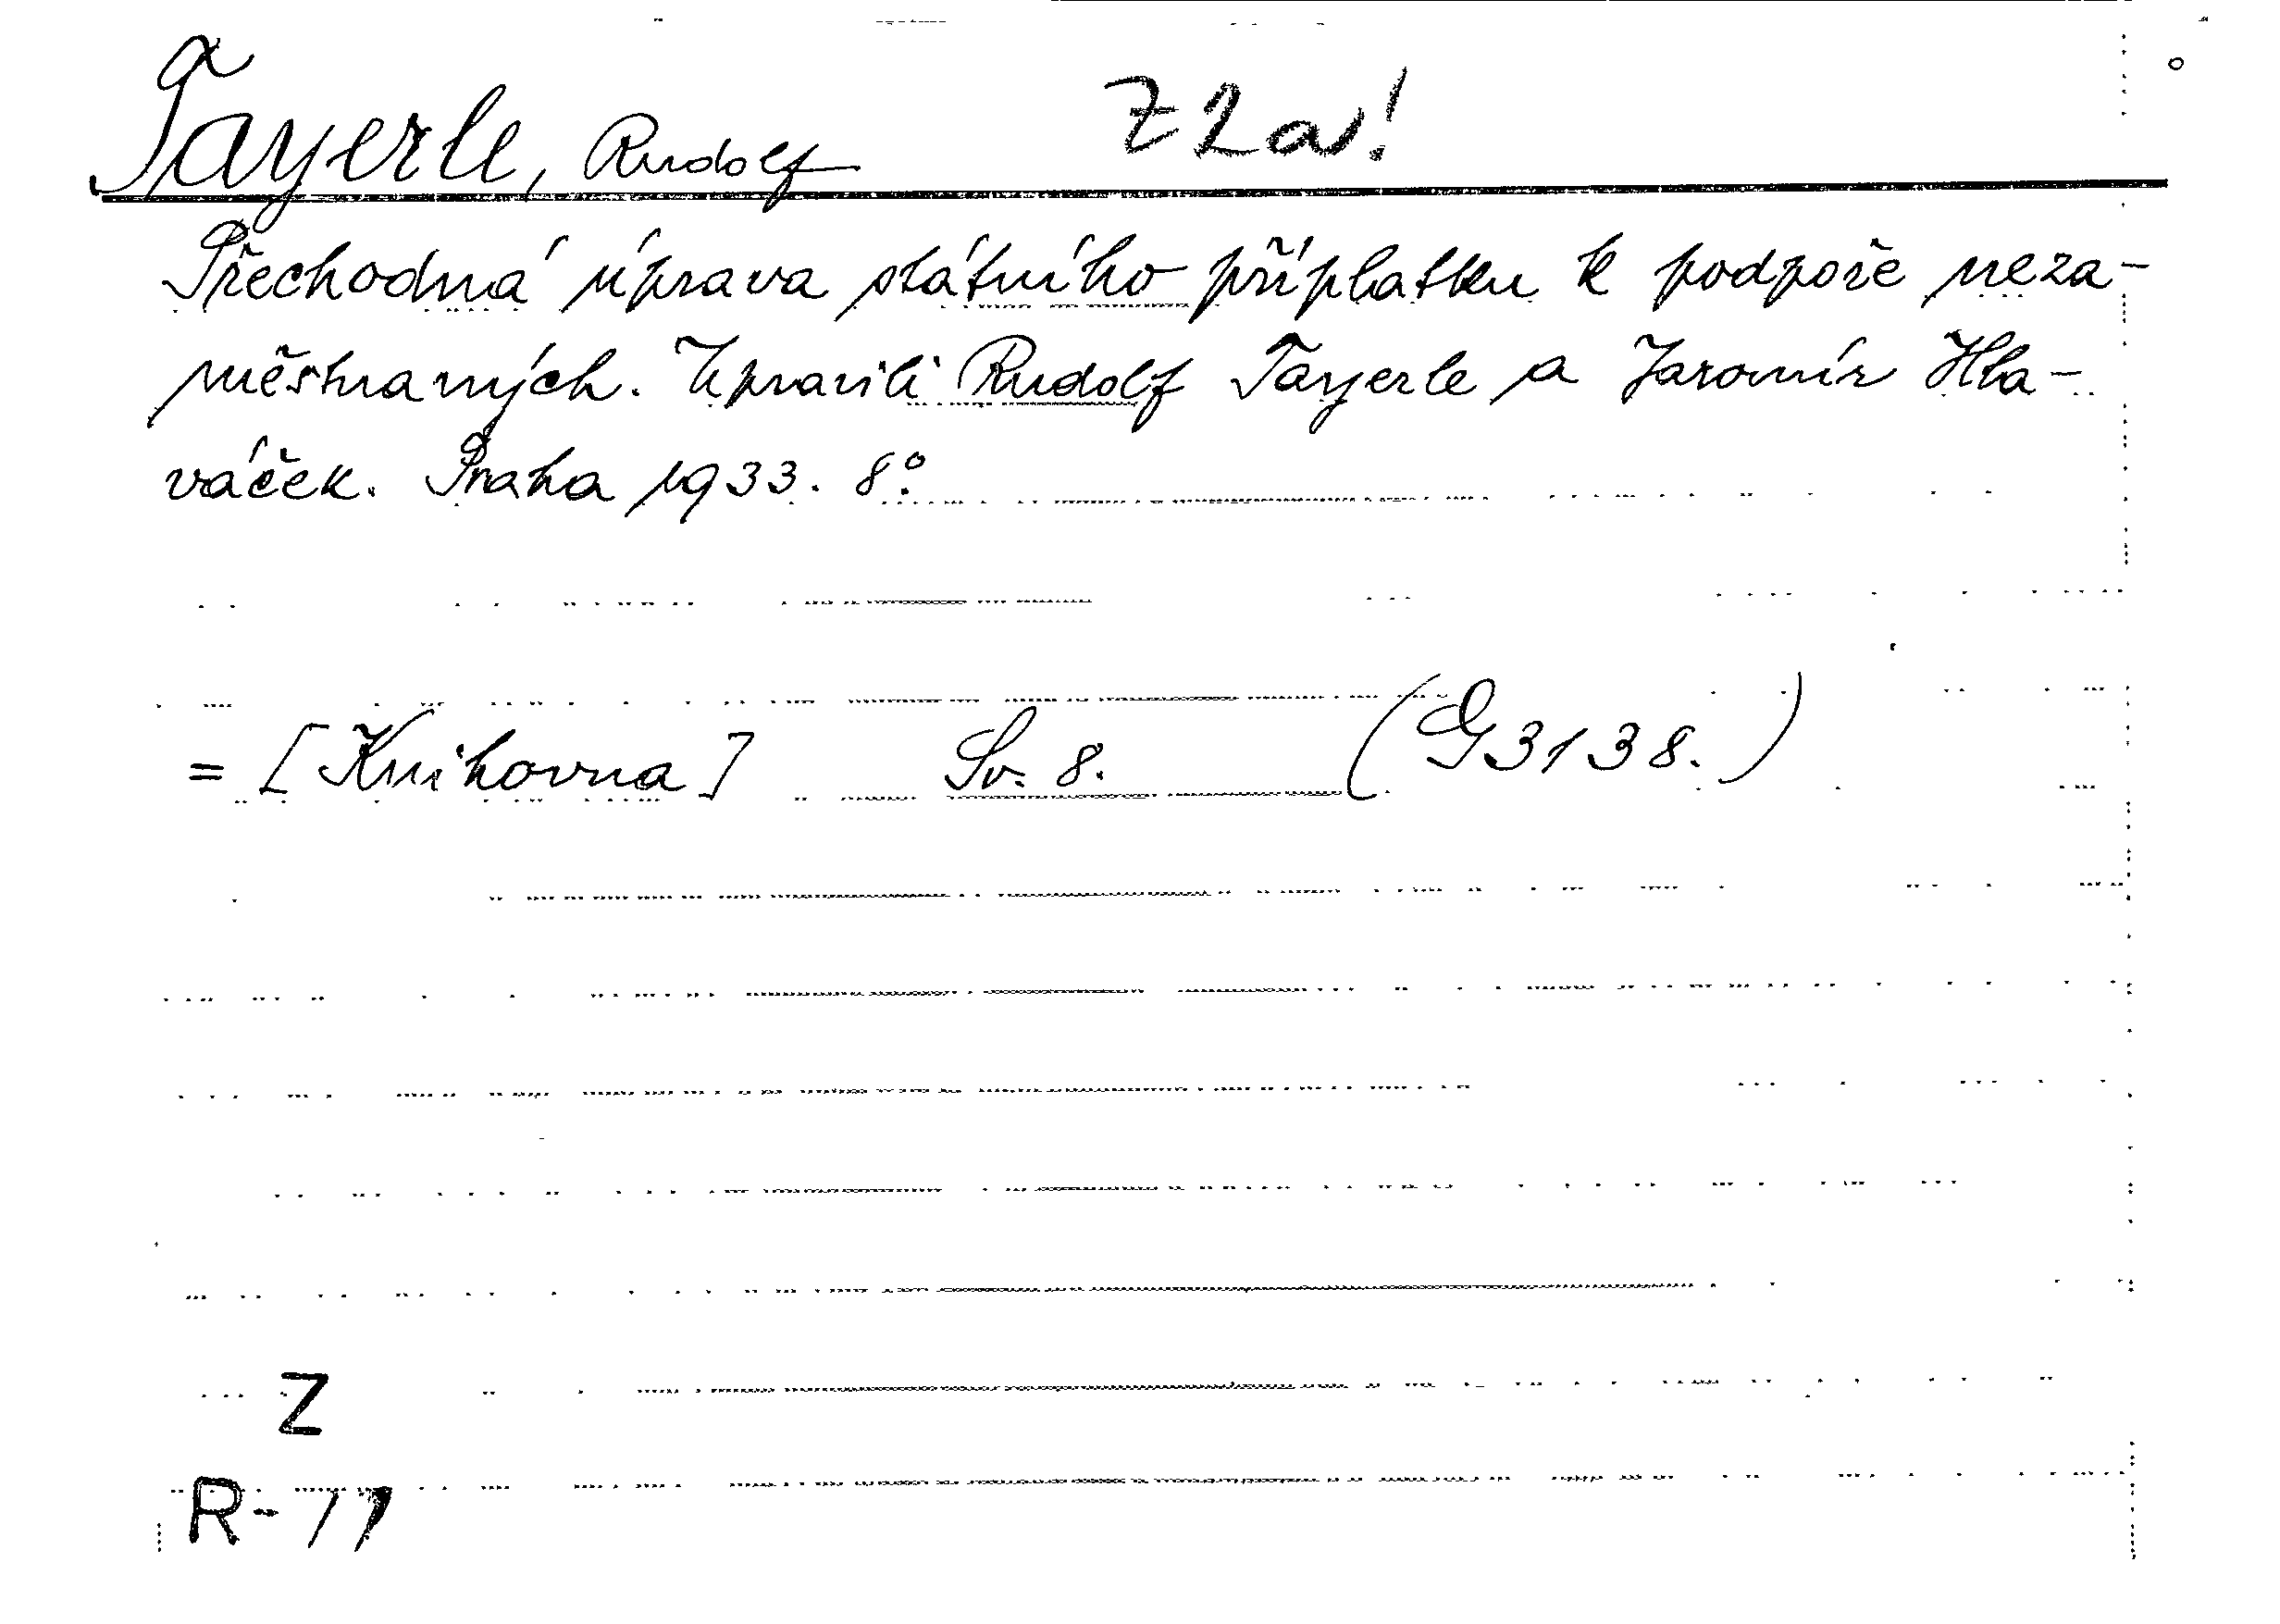 Tayerle, Rudolf
Přechodná úprava státního příplatku k podpoře neza-
městnaných. Upravili Rudolf Tayerle a Jaromír Hla-
váček. Praha 1933. 8°.
= [Knihovna] Sv. 8. (G 3138.)
Z
R-